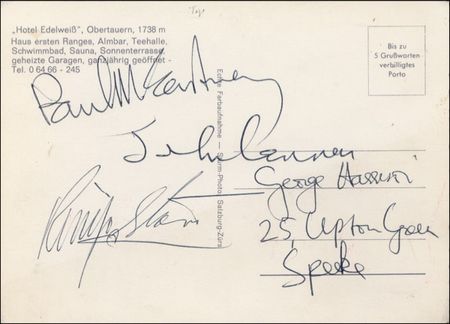 „Hotel Edelweiß", Obertauern, 1738 m
Haus ersten Ranges, Almbar, Teehalle,
Schwimmbad, Sauna, Sonnenterrasse,
geheizte Garagen, ganzjährig geöffnet -
Tel. 0 64 66 - 245
Bis zu
5 Grußworten
verbilligtes
Porto
Paul McCartney
John Lennon
George Harrison
Ringo Starr
25 Upton Green
Speke
Echte Farbaufnahme — Sturm-Photo, Salzburg-Zürs